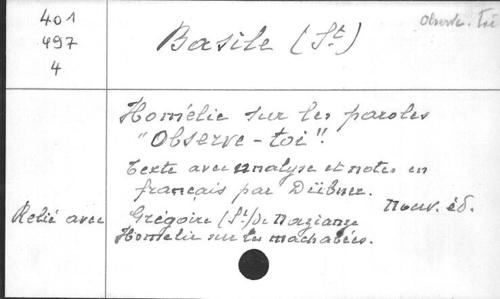 401
497
4
Basile (St)
Observe-Toi
Homélie sur les paroles
"Observe-toi".
Texte avec analyse et notes en
français par Dübner.
Nouv. éd.
Relié avec Grégoire (St) de Nazianze
Homélie sur les machabées.